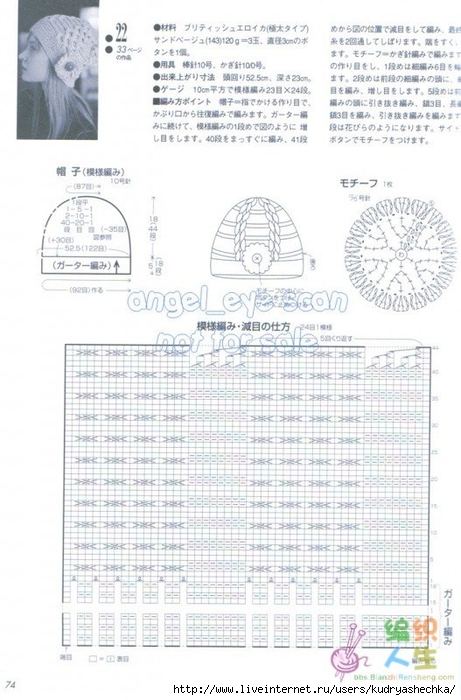 22
33ページ
の作品
●材料 ブリティッシュエロイカ(極太タイプ)
サンドベージュ(143)120g＝3玉、直径3cmのボ
タンを1個。
●用具 棒針10号、かぎ針10/0号。
●出来上がり寸法 頭回り52.5cm、深さ23cm。
●ゲージ 10cm平方で模様編み23目×24段。
■編み方ポイント 帽子＝指でかける作り目で、
かぶり口から往復編みで編みます。ガーター編
みに続けて、模様編みの1段めで図のように 増
し目をします。40段をまっすぐに編み、41段
めから図の位置で減目をして編み、最終
糸を2回通してしぼります。端をすく
ます。モチーフ＝かぎ針編みで編みます
の作り目をし、1段めは細編み6目を編
ます。2段めは前段の細編みの頭に、
目を編み、増し目をします。5段めは前
編みの頭に引き抜き編み、鎖3目、長編
鎖3目を編み、引き抜き編みを編みます
段は花びらのようになります。サイド
ボタンでモチーフをつけます。
帽 子(模様編み)
10号針
(87目)
1段平
1-5-1
2-10-1
40-20-1
段 目 回
(-35目)
図参照
(+30目)
52.5(122目)
(ガーター編み)
(92目)作る
18
44
段
5
18
段
モチーフ 1枚
モチーフの中心に
angel_eye scan
not for sale
模様編み・減目の仕方
24目1模様
5回くり返す
44
ガーター編み
端目
裏目
編み
编织
人生
bbs.Bianzhirensheng.com
74
http://www.liveinternet.ru/users/kudryashechka/